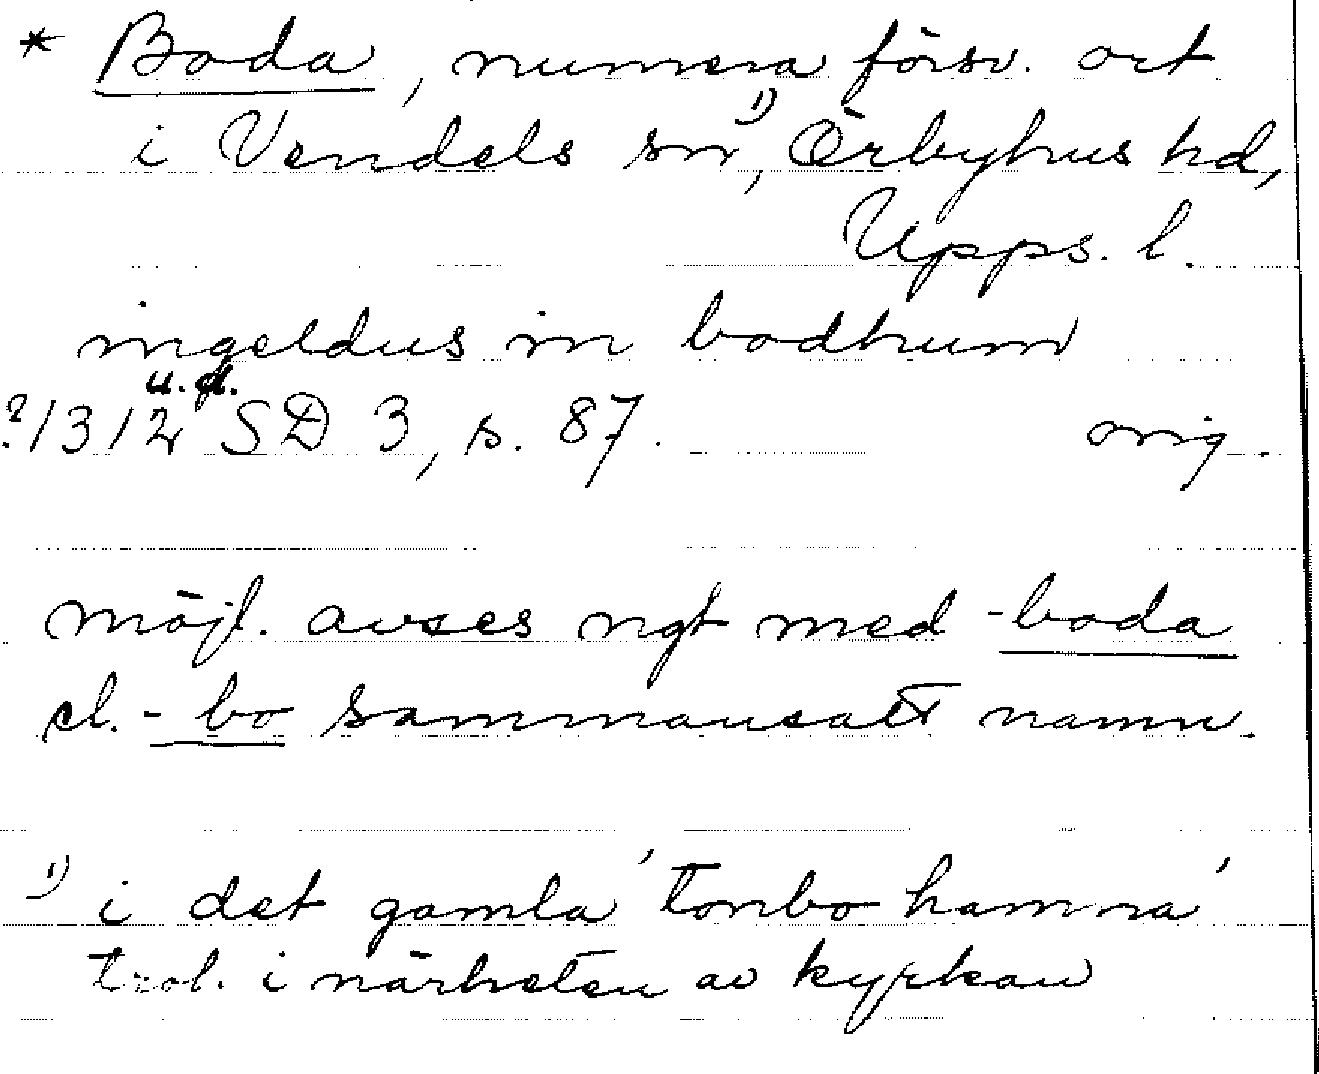 * Boda, numera försv. ort
i Vendels sn¹⁾, Örbyhus hd,
Upps. l.
ingeldus in bodhum
u. d.
?1312 SD 3, s. 87. orig.
möjl. avses ngt med -boda
el. -bo sammansatt namn.
¹⁾ i det gamla 'tonbo hamna'
trol. i närheten av kyrkan